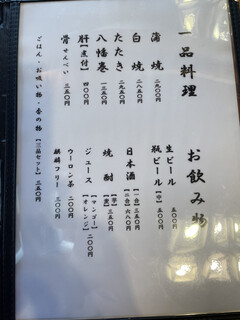 一品料理
蒲焼 二九〇〇
白焼 二八五〇
たたき 二九五〇
八幡巻 一三五〇
肝【煮付】 四〇〇
骨せんべい 三五〇
ごはん・お吸い物・香の物【三品セット】 三五〇
お飲み物
生ビール 五〇〇
瓶ビール【中】 五〇〇
日本酒【一合】三五〇
【二合】六八〇
焼酎【芋】三五〇
ジュース【マンゴー】【オレンジ】二〇〇
ウーロン茶 二〇〇
麒麟フリー 三〇〇